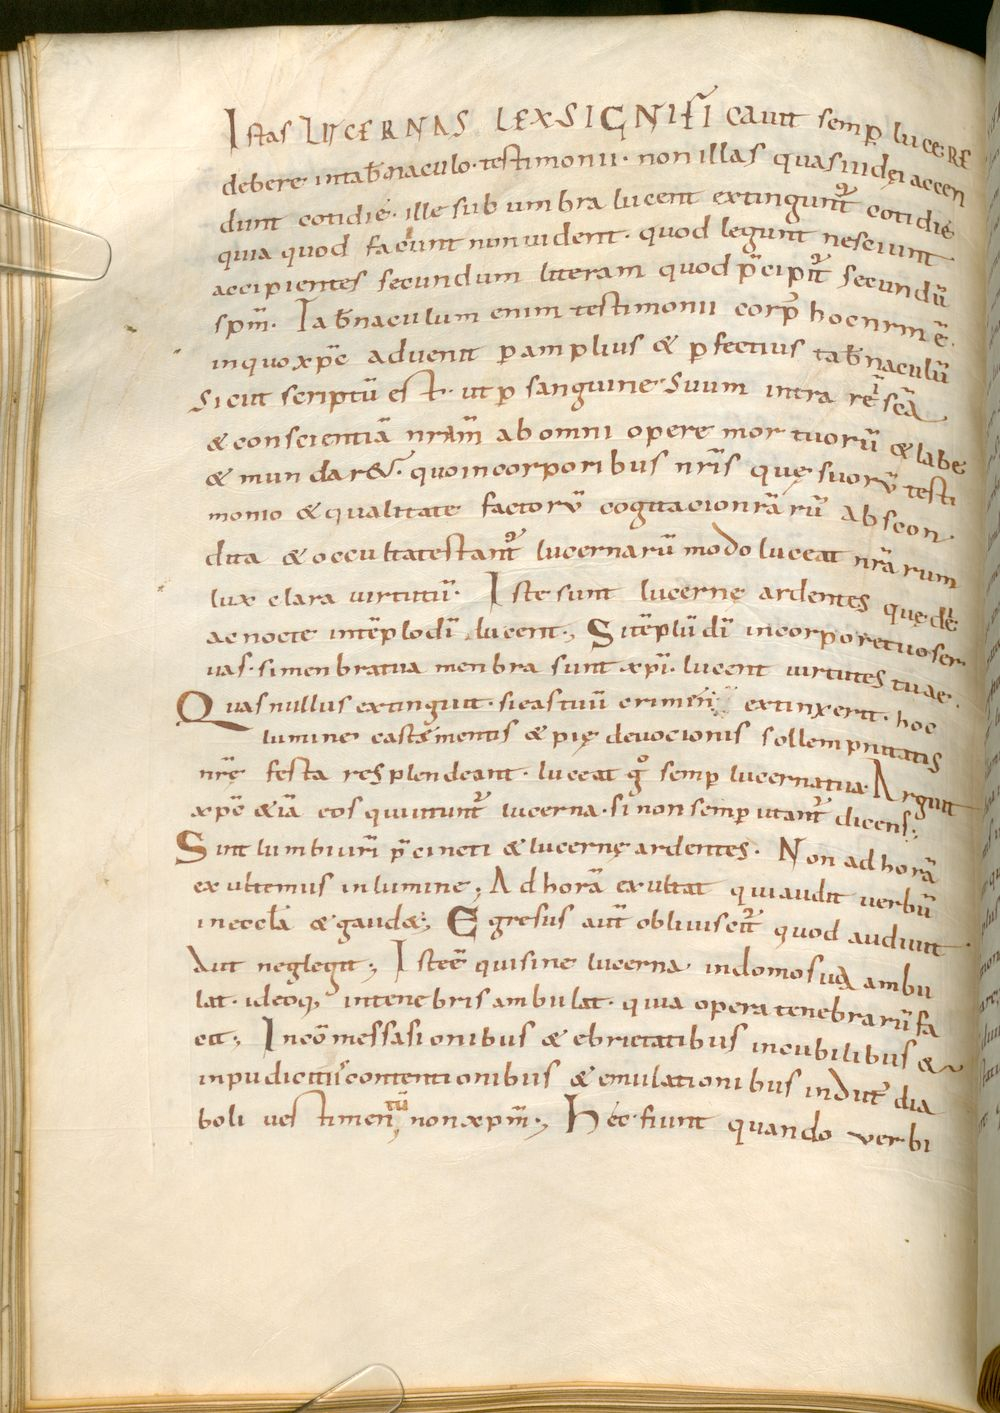 Istas LUCERNAS LEXSIGNIFI cauit semp̲ luceRE
debere intab̄naculo· testimonii· non illas quasiudęi accen
dunt cotidie· ille sub umbra lucent extingunt᷒ cotidie
quia quod faciunt nonuident· quod legunt nesciunt
accipientes secundum literam quod p̄cipit᷒ secundū
sp̄m· Tab̄naculum enim testimonii corp᷒ hocnrm̄ ē·
inquo xp̄e aduenit p̲ amplius & p̲fectius tab̄naculū
Sicut scriptū est· ut p̲ sanguine suum intra rēt scā
& conscientiā nrām ab omni opere mortuorū & labe
& mundar&᷒· quoincorporibus nrīs quę suorū testi
monio & qualitate factorū cogitacionrārū abscon
dita & occultatestant᷒ lucernarū modo luceat nrārum
lux clara uirtutū· Iste sunt lucernę ardentes quę dē
ac nocte intēplodī lucent; Si tēplū dī incorporetuoser
uas· simenbratua menbra sunt xp̄i· lucent uirtutes tuae·
Quasnullus extinguit· sieastuū crimen extinxerit· hoc
lumine castęmentis & pię deuocionis sollempnitatis
nr̄ę festa resplendeant· luceat g᷒ semp̲ lucernatua· Arguit
xp̄e &iā eos quiutunt᷒ lucerna· sinonsemp̲ utant᷒ dicens;
Sint lumbiur̄i p̄cincti & lucernę ardentes· Non ad horā
exultemus inlumine; Adhorā exultat quiaudit uerbū
inecclā & gaud&; Egresus aut̄ obliuiscit᷒ quod audiuit·
Aut neglegit; Isteē quisine lucerna indomosuą ambu
lat· ideoq; intenebris ambulat· quia opera tenebrarū fa
cit; Incōmessasionibus & ebrietatibus incubilibus &
inpudicitiis contentionibus & emulationibus induit᷒ dia
boli uestimentū non xp̄m; Hęc fiunt quando uerbi